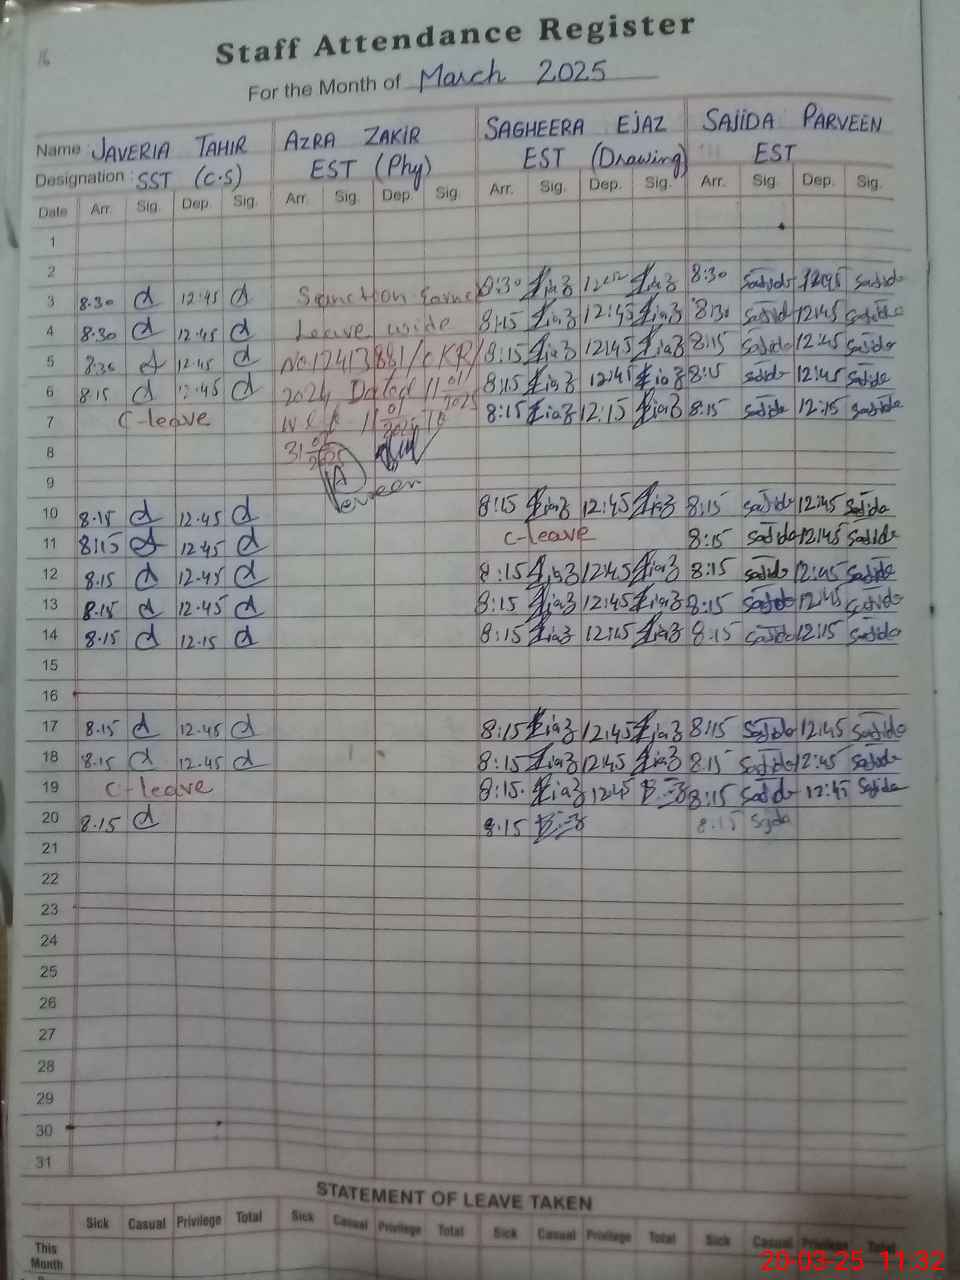 16
Staff Attendance Register
For the Month of March 2025
Name JAVERIA TAHIR AZRA ZAKIR SAGHEERA EJAZ SAJIDA PARVEEN
Designation : SST (C.S) EST (Phy) EST (Drawing) EST
Date Arr. Sig. Dep. Sig. Arr. Sig. Dep. Sig. Arr. Sig. Dep. Sig. Arr. Sig. Dep. Sig.
1
2
3 8.30 12:45 Sanction Earned 8:30 8:30 Sajida 12:45 Sajida
4 8.30 12.45 Leave wide 8:15 12:45 8:30 Sajida 12:45 Sajida
5 8.30 12.45 8:15 12:45 8:15 Sajida 12:45 Sajida
6 8.15 12.45 2024 Dated 11 01 2025 8:15 12:45 8:15 Sajida 12:45 Sajida
7 C-leave 11 01 2025 8:15 12:15 8:15 Sajida 12:15 Sajida
8 31
9
10 8.15 12.45 8:15 12:45 8:15 Sajida 12:45 Sajida
11 8:15 12.45 C-leave 8:15 Sajida 12:45 Sajida
12 8.15 12.45 8:15 12:45 8:15 Sajida 12:45 Sajida
13 8.15 12.45 8:15 12:45 8:15 Sajida 12:45 Sajida
14 8.15 12.15 8:15 12:15 8:15 Sajida 12:15 Sajida
15
16
17 8.15 12.45 8:15 12:45 8:15 Sajida 12:45 Sajida
18 8.15 12.45 8:15 12:45 8:15 Sajida 12:45 Sajida
19 C-leave 8:15 12:45 8:15 Sajida 12:45 Sajida
20 8.15 8.15 8:15 Sajida
21
22
23
24
25
26
27
28
29
30
31
STATEMENT OF LEAVE TAKEN
Sick Casual Privilege Total Sick Casual Privilege Total Sick Casual Privilege Total Sick Casual Privilege Total
This
Month
20-03-25 11:32